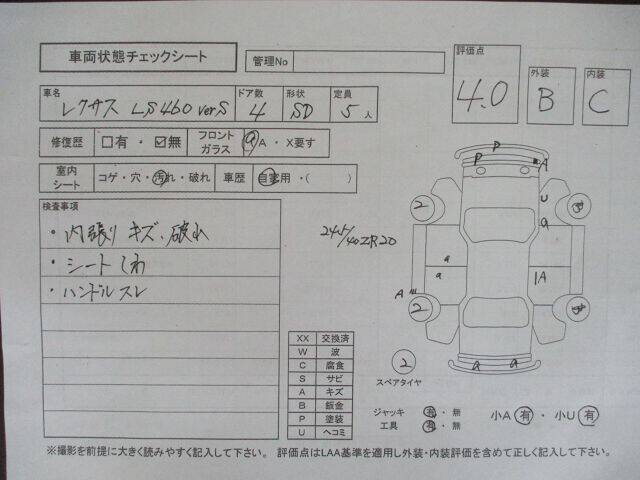 車両状態チェックシート
管理No
評価点 4.0
外装 B
内装 C
車名 レクサス LS460 verS
ドア数 4
形状 SD
定員 5人
修復歴 □有・☑無
フロントガラス ⓐA・X要す
室内シート コゲ・穴・汚れ・破れ
車歴 自家用・( )
検査事項
・内張りキズ、破れ
・シートしわ
・ハンドルスレ
245/40ZR20
P
P
A
2
U
a
a
a
1A
A
2
a a
2
スペアタイヤ
XX 交換済
W 波
C 腐食
S サビ
A キズ
B 鈑金
P 塗装
U ヘコミ
ジャッキ 有・無
工具 有・無
小A 有・小U 有
※撮影を前提に大きく読みやすく記入して下さい。 評価点はLAA基準を適用し外装・内装評価を含めて正しく記入して下さい。